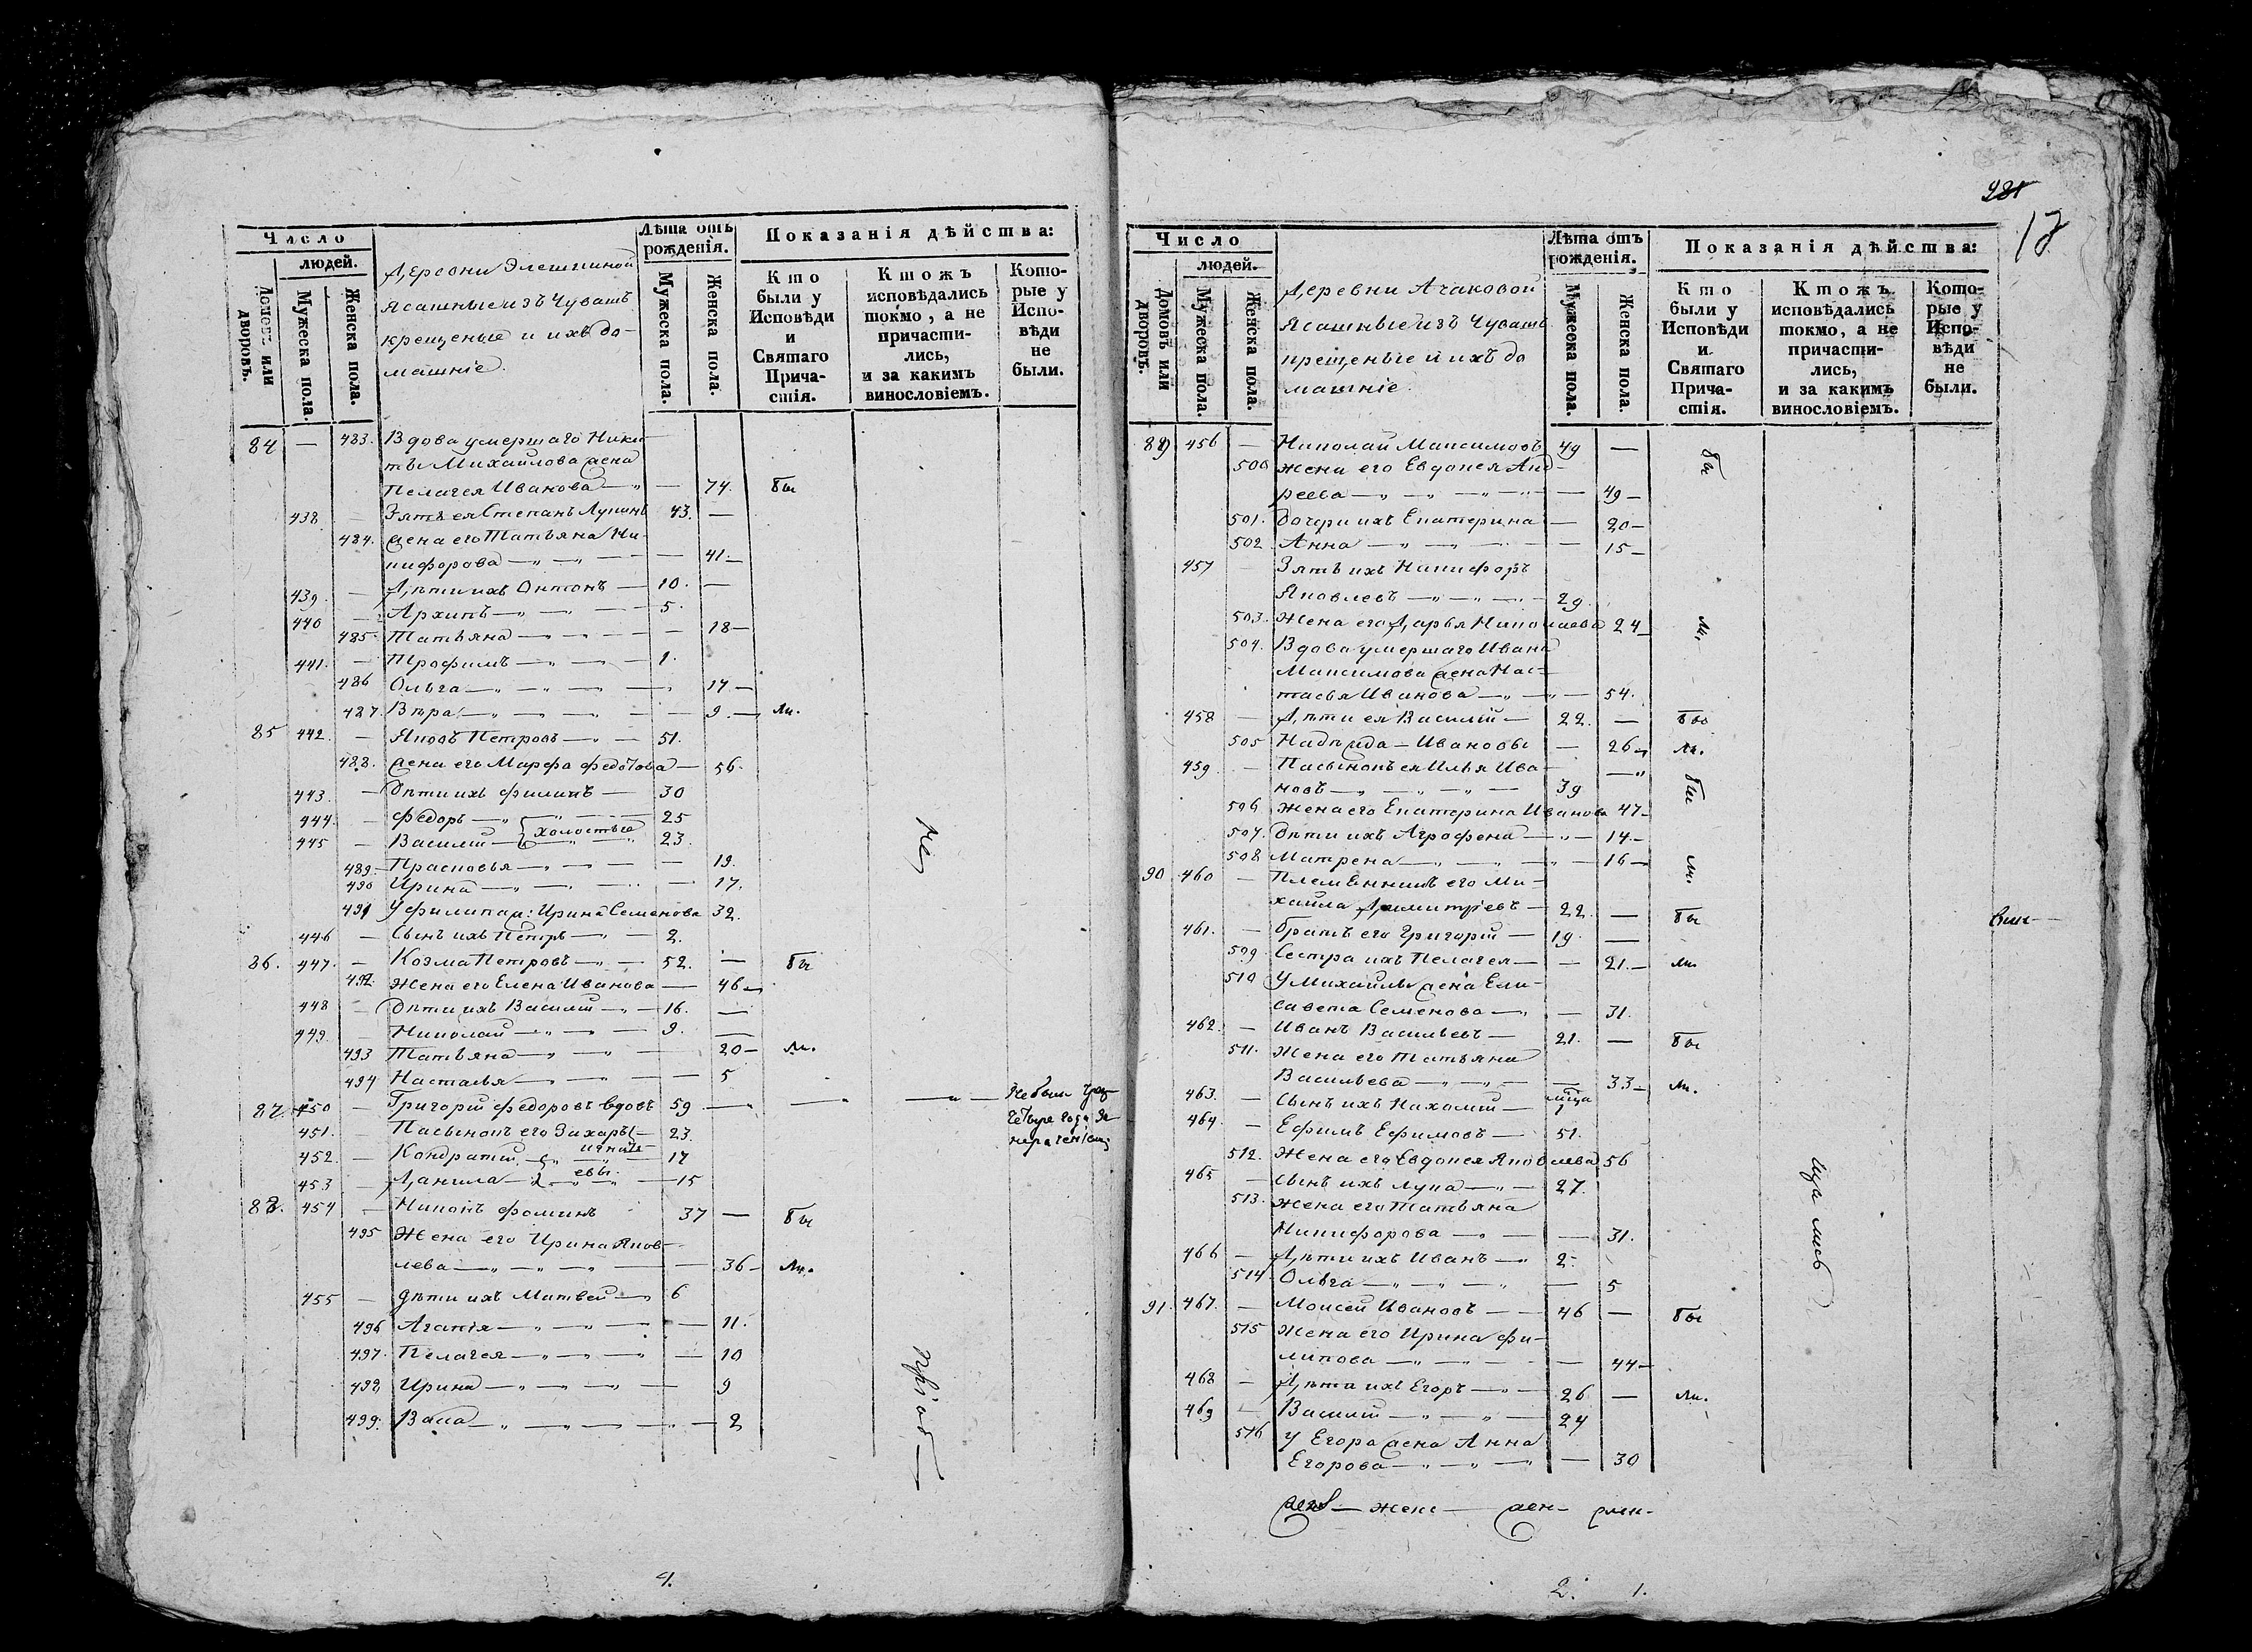 Число
людей.
Домовъ или дворовъ.
Мужеска пола.
Женска пола.
Деревни Элешкиной
Ясашные изъ Чувашъ
крещеные и ихъ до-
машніе.
Лѣта отъ рожденія.
Мужеска пола.
Женска пола.
Показанія дѣйства:
Кто были у Исповѣди и Святаго Прича- стія.
Ктожъ исповѣдались токмо, а не причасти- лись, и за какимъ винословіемъ.
Кото- рые у Испо- вѣди не были.
84 — 483. Вдова умершаго Ники-
ты Михайлова жена
Пелагея Иванова — 74. бы
438 — Зять ея Степанъ Лукинъ 43. —
484. жена его Татьяна Ни-
кифорова — 41 —
439 — Дѣти ихъ Антонъ — 10. —
440 — Архипъ — 5.
485 Татьяна — 18 —
441. — Трофимъ — 1.
486 Ольга — 17. —
487. Вѣра — 9. — ли.
85 442. — Яковъ Петровъ — 51.
488. жена его Марфа Федотова — 56.
443. — Дѣти ихъ Филипъ — 30
444. — Федоръ — 25
445 — Василій — холостые 23.
489. Прасковья — 19.
490 Ирина — 17.
491 У Филипа ж: Ирина Семенова 32.
446 — Сынъ ихъ Петръ — 2.
86. 447. — Козма Петровъ — 52. — бы
492. Жена его Елена Иванова — 46 —
448 — Дѣти ихъ Василій — 16. —
449. — Николай — 9. —
493 Татьяна — 20 — ли.
494 Настасья — 5
87. 450 — Григорій Федоровъ вдовъ 59 — Не былъ
четыре года за
нерачениемъ
451. — Пасынокъ его Захаръ — 23.
452. — Кондратій — Игнать- 17
453 — Данила — евы. — 15
88. 454 — Никонъ Фоминъ 37 — бы
495 Жена его Ирина Яков-
лева — 36 — ли.
455 — дѣти ихъ Матвей — 6
496 Агапія — 11.
497. Пелагея — 10
498 Ирина — 9
499. Васа — 2
Не
пріоб
4.
281
17
Число
людей.
Домовъ или дворовъ.
Мужеска пола.
Женска пола.
Деревни Ачаковой
Ясашные изъ Чувашъ
крещеные и ихъ до
машніе.
Лѣта отъ рожденія.
Мужеска пола.
Женска пола.
Показанія дѣйства:
Кто были у Исповѣди и Святаго Прича- стія.
Ктожъ исповѣдались токмо, а не причасти- лись, и за какимъ винословіемъ.
Кото- рые у Испо- вѣди не были.
89 456 — Николай Максимовъ 49 — бы
500 жена его Евдокея Анд-
реева — 49 —
501. Дочери ихъ Екатерина — 20 —
502 Анна — 15 —
457 — Зять ихъ Никифоръ
Яковлевъ — 29.
503. Жена его Дарья Николаева 24 — ли.
504. Вдова умершаго Ивана
Максимова жена Нас-
тасья Иванова — 54.
458 — Дѣти ея Василій — 22. — бы
505 Надежда — Ивановы — 26 — ли.
459. — Пасынокъ ея Илья Ива-
новъ — 39 — бы
506 Жена его Екатерина Иванова 47 —
507. Дѣти ихъ Агрофена — 14 —
508 Матрена — 16 — ли.
90 460 — Племянникъ его Ми-
хайла Димитріевъ — 22. — бы
461. — братъ его Григорій — 19. —
509 Сестра ихъ Пелагея — 21. — ли.
510 У Михайлы жена Ели-
савета Семенова — 31.
462. — Иванъ Васильевъ — 21. — бы
511. Жена его Татьяна
Васильева — 33 — ли.
463. — Сынъ ихъ Пахомій — 1
464. — Ефимъ Ефимовъ — 51.
512. Жена его Евдокея Яковлева 56
465 — сынъ ихъ Лука — 27.
513. Жена его Татьяна
Никифорова — 31.
466 — Дѣти ихъ Иванъ — 2.
514 Ольга — 5
91. 467. — Моисей Ивановъ — 46 — бы
515 Жена его Ирина Фи-
липова — 44 —
468 — Дѣти ихъ Егоръ — 26 — ли.
469 — Василій — 24
516 У Егора жена Анна
Егорова — 30
щались
2. 1.